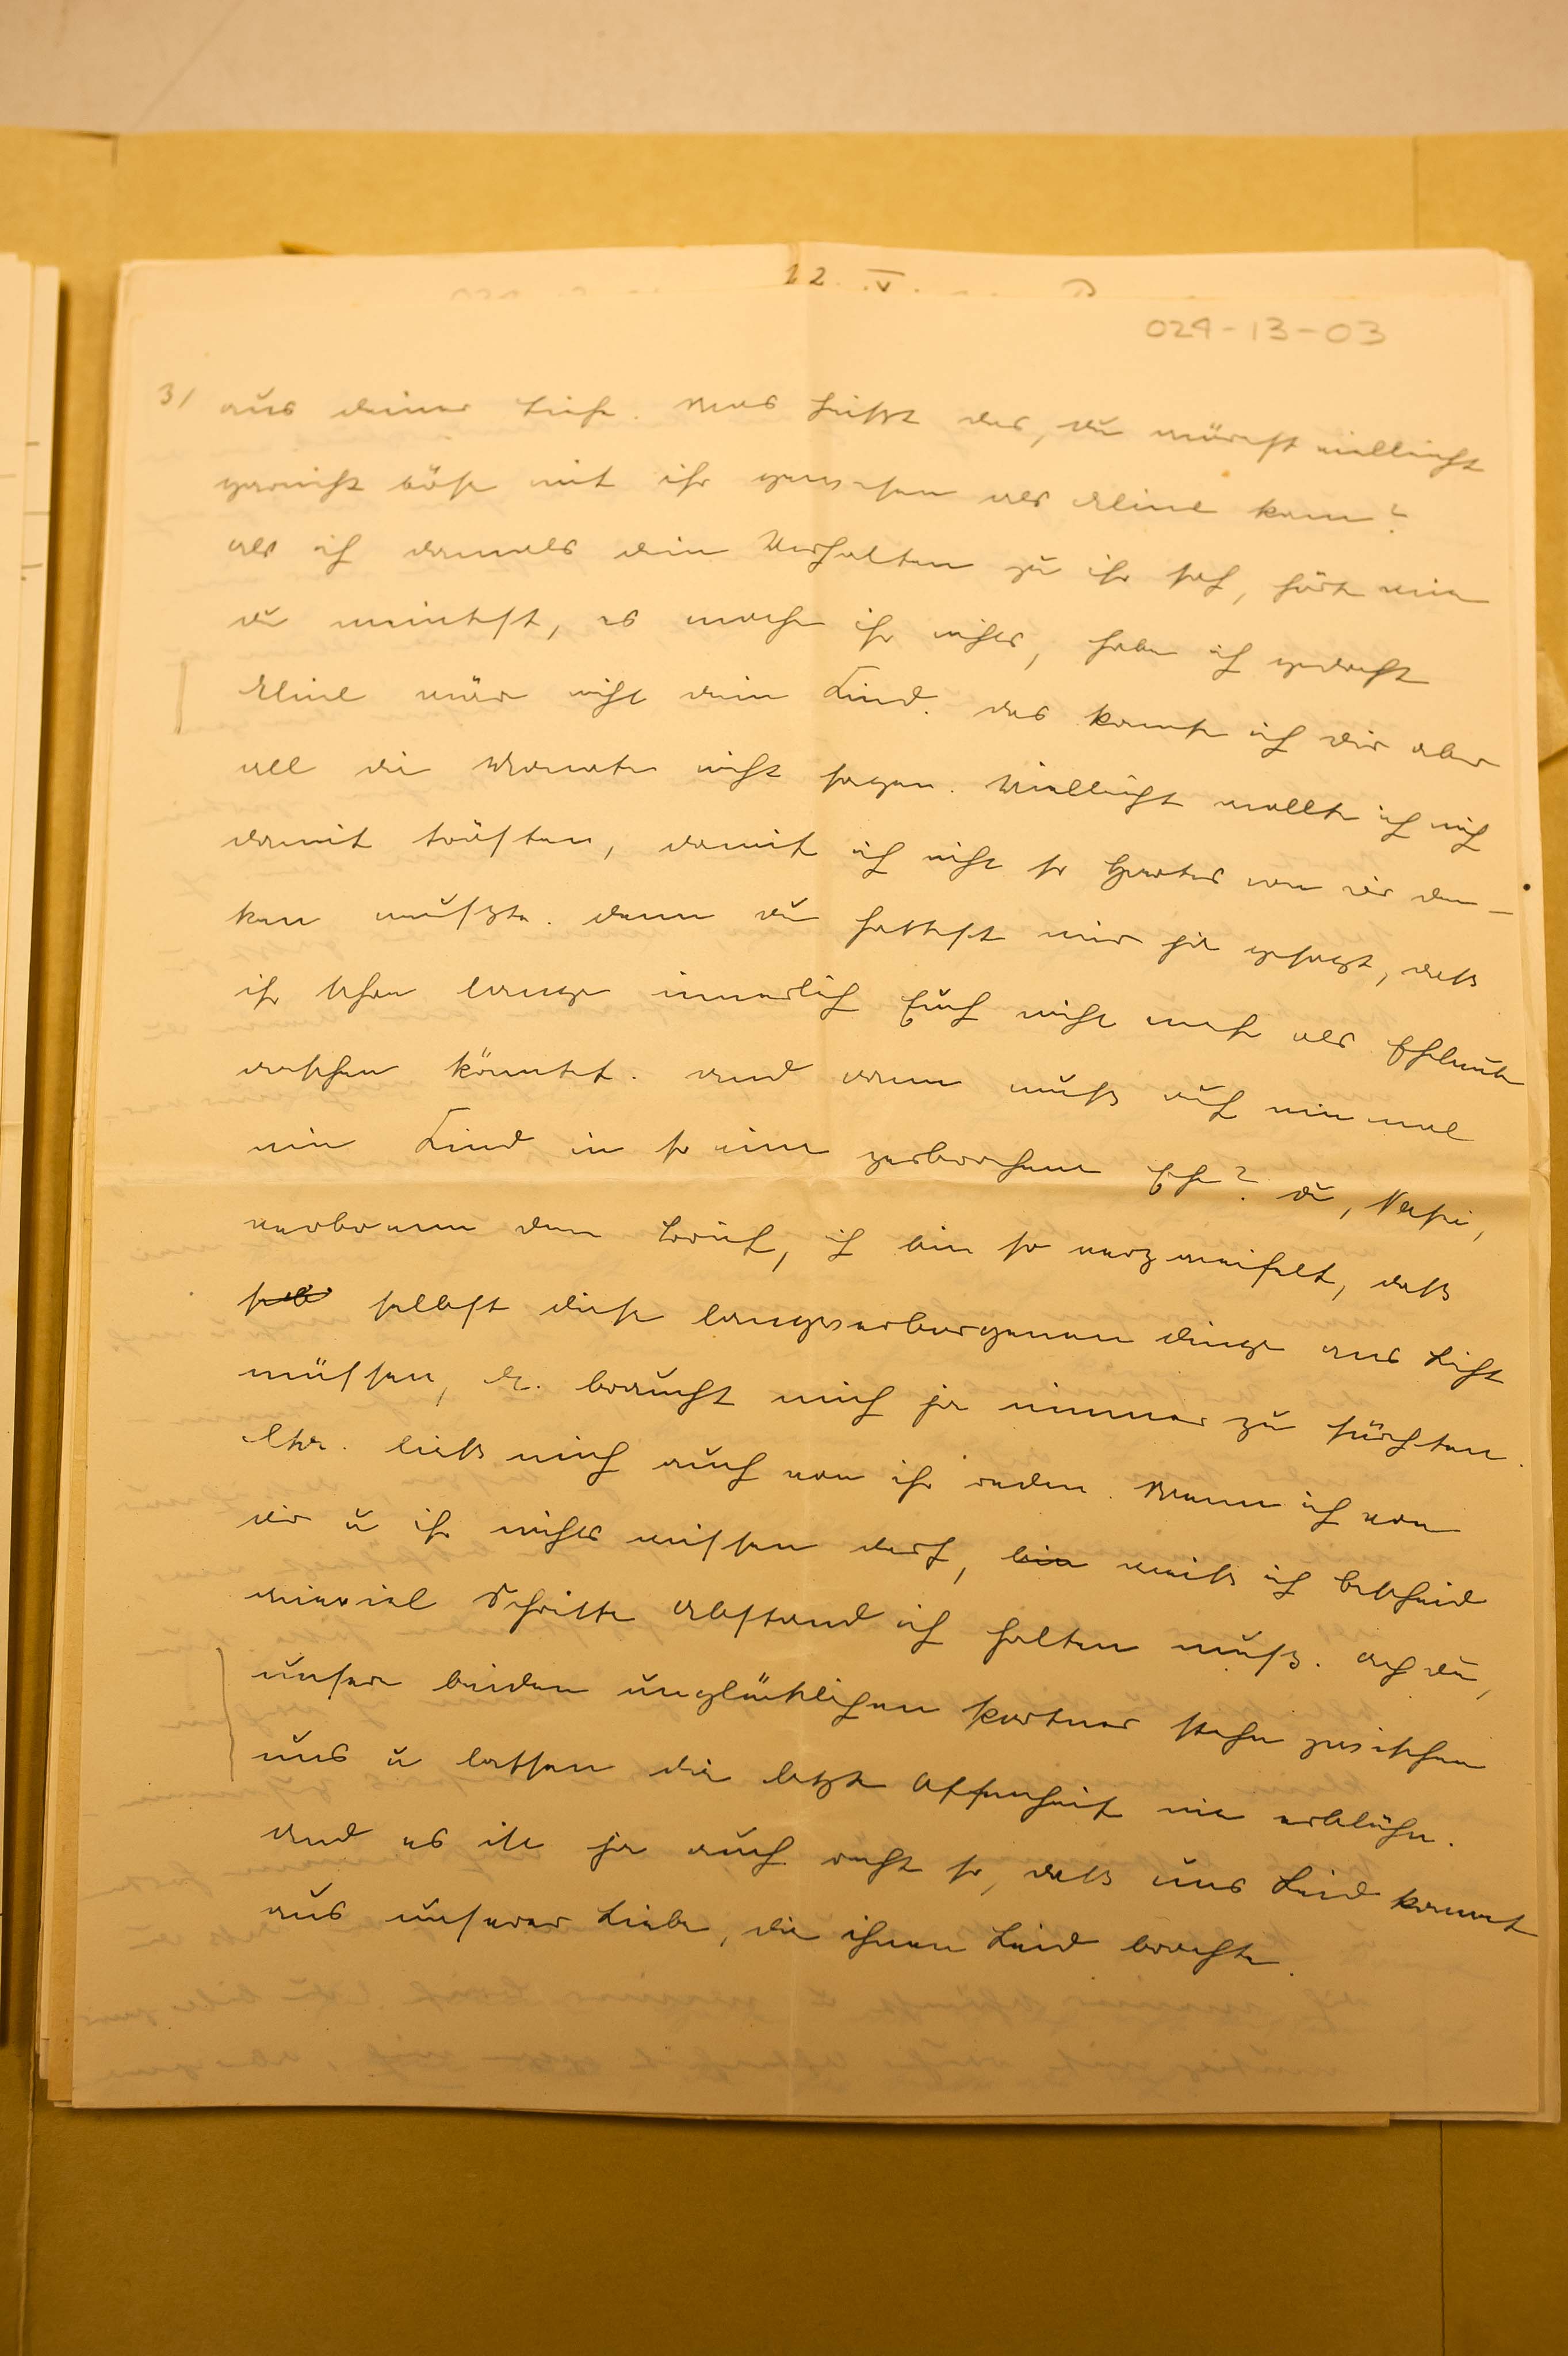 12. V.
029-13-03
3/ aus deiner Tiefe. Was heißt das, du wärest vielleicht
garnicht böse mit ihr gewesen als kam?
als ich damals dein Verhalten zu ihr sah, hörte wie
du meintest, es mache ihr nichts, habe ich gedacht
wär nicht dein Kind. das konnte ich dir aber
all die Monate nicht sagen. Vielleicht wollte ich mich
damit trösten, damit ich nicht so Hartes von dir den-
ken mußte. denn du hattest mir ja gesagt, daß
ihr schon lange innerlich Euch nicht mehr als Eheleute
ansehen könntet. und dann muß auf einmal
ein Kind in so eine zerbrochene Ehe? du,
verbrenn den Brief, ich bin so verzweifelt, daß
selbst diese langverborgenen dinge ans Licht
müssen, braucht mich ja nimmer zu fürchten.
ließ mich auch von ihr reden. Wenn ich von
dir u ihr nichts wissen darf, bin weiß ich bescheid
wieviel Schritte Abstand ich halten muß. ach du,
unsere beiden unglücklichen partner stehn zwischen
uns u lassen die letzte Offenheit nie erblühn.
und es ist ja auch recht so, daß uns Leid kommt
aus unserer Liebe, die ihnen Leid brachte.